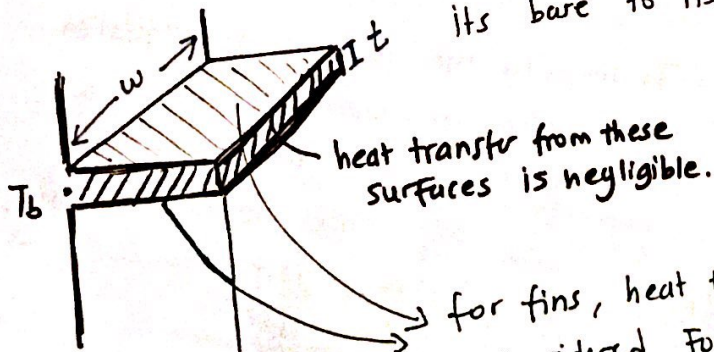 its bare to its
w
t
heat transfer from these
surfaces is negligible.
Tb
for fins, heat
considered. Fo